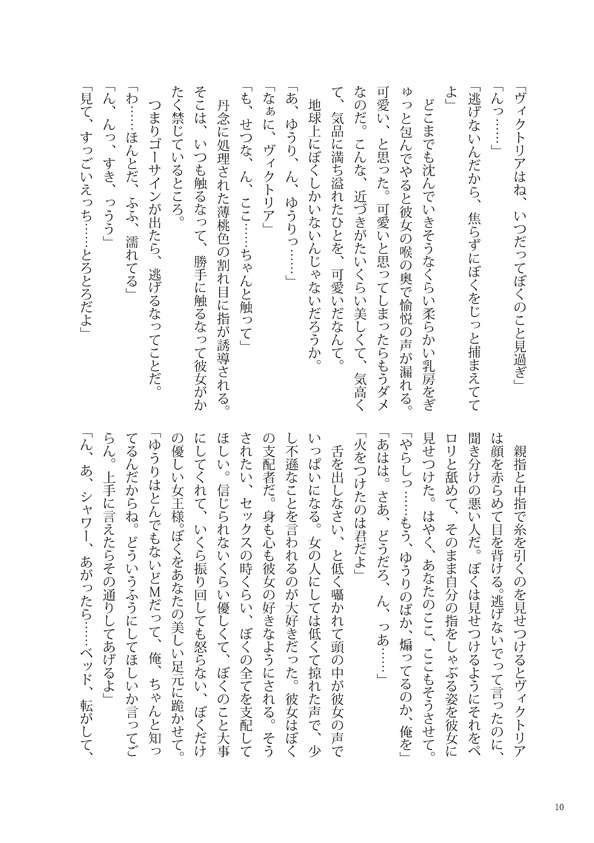 「ヴィクトリアはね、いつだってぼくのこと見過ぎ」
「んっ……」
「逃げないんだから、焦らずにぼくをじっと捕まえてて
よ」
　どこまでも沈んでいきそうなくらい柔らかい乳房をぎ
ゅっと包んでやると彼女の喉の奥で愉悦の声が漏れる。
可愛い、と思った。可愛いと思ってしまったらもうダメ
なのだ。こんな、近づきがたいくらい美しくて、気高く
て、気品に満ち溢れたひとを、可愛いだなんて。
　地球上にぼくしかいないんじゃないだろうか。
「あ、ゆうり、ん、ゆうりっ……」
「なぁに、ヴィクトリア」
「も、せつな、ん、ここ……ちゃんと触って」
　丹念に処理された薄桃色の割れ目に指が誘導される。
そこは、いつも触るなって、勝手に触るなって彼女がか
たく禁じているところ。
　つまりゴーサインが出たら、逃げるなってことだ。
「わ……ほんとだ、ふふ、濡れてる」
「ん、んっ、すき、っうう」
「見て、すっごいえっち……とろとろだよ」
　親指と中指で糸を引くのを見せつけるとヴィクトリア
は顔を赤らめて目を背ける。逃げないでって言ったのに、
聞き分けの悪い人だ。ぼくは見せつけるようにそれをペ
ロリと舐めて、そのまま自分の指をしゃぶる姿を彼女に
見せつけた。はやく、あなたのここ、ここもそうさせて。
「やらしっ……もう、ゆうりのばか、煽ってるのか、俺を」
「あはは。さあ、どうだろ、ん、っあ……」
「火をつけたのは君だよ」
　舌を出しなさい、と低く囁かれて頭の中が彼女の声で
いっぱいになる。女の人にしては低くて掠れた声で、少
し不遜なことを言われるのが大好きだった。彼女はぼく
の支配者だ。身も心も彼女の好きなようにされる。そう
されたい、セックスの時くらい、ぼくの全てを支配して
ほしい。信じられないくらい優しくて、ぼくのこと大事
にしてくれて、いくら振り回しても怒らない、ぼくだけ
の優しい女王様。ぼくをあなたの美しい足元に跪かせて。
「ゆうりはとんでもないどMだって、俺、ちゃんと知っ
てるんだからね。どういうふうにしてほしいか言ってご
らん。上手に言えたらその通りしてあげるよ」
「ん、あ、シャワー、あがったら……ベッド、転がして、
10